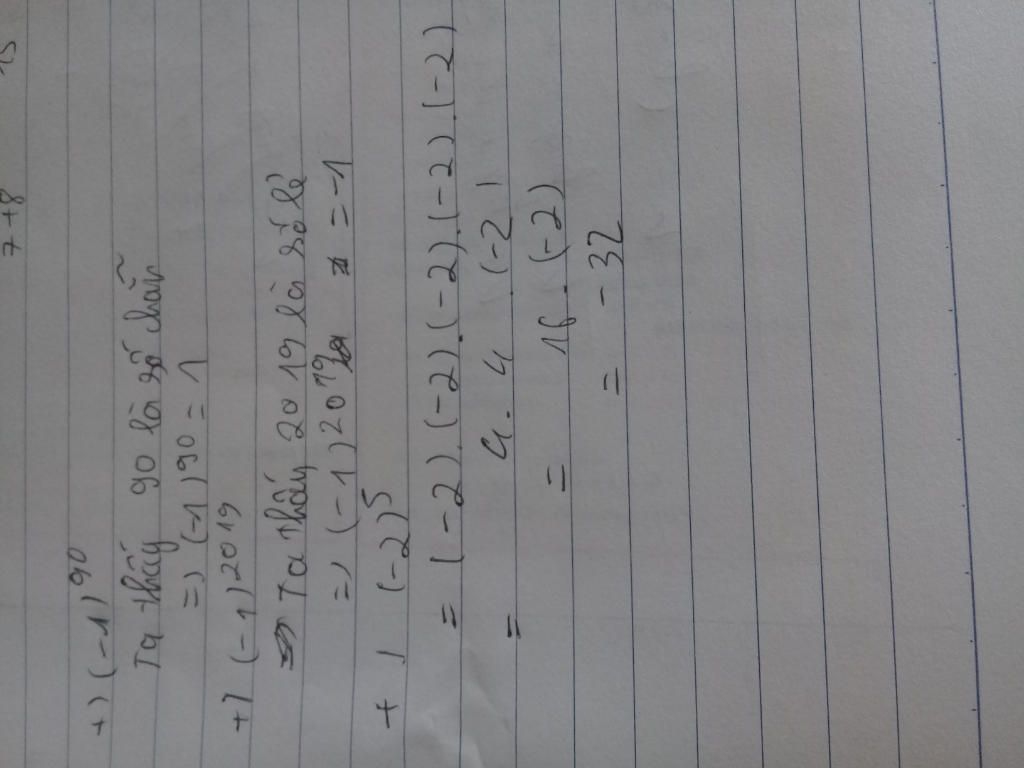 7 +8
+) (-1)⁹⁰
Ta thấy 90 là số chẵn
=) (-1) 90 = 1
+) (-1) 2019
Ta thấy 2019 là số lẻ
=) (-1) 2019 = -1
+ ) (-2)⁵
= (-2).(-2).(-2).(-2).(-2)
= 4.4.(-2)
= 16.(-2)
= -32